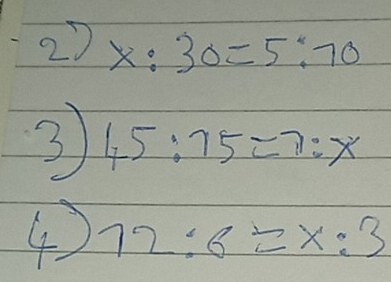 2) x : 30 = 5 : 10
3) 45 : 15 = 1 : x
4) 12 : 6 = x : 3